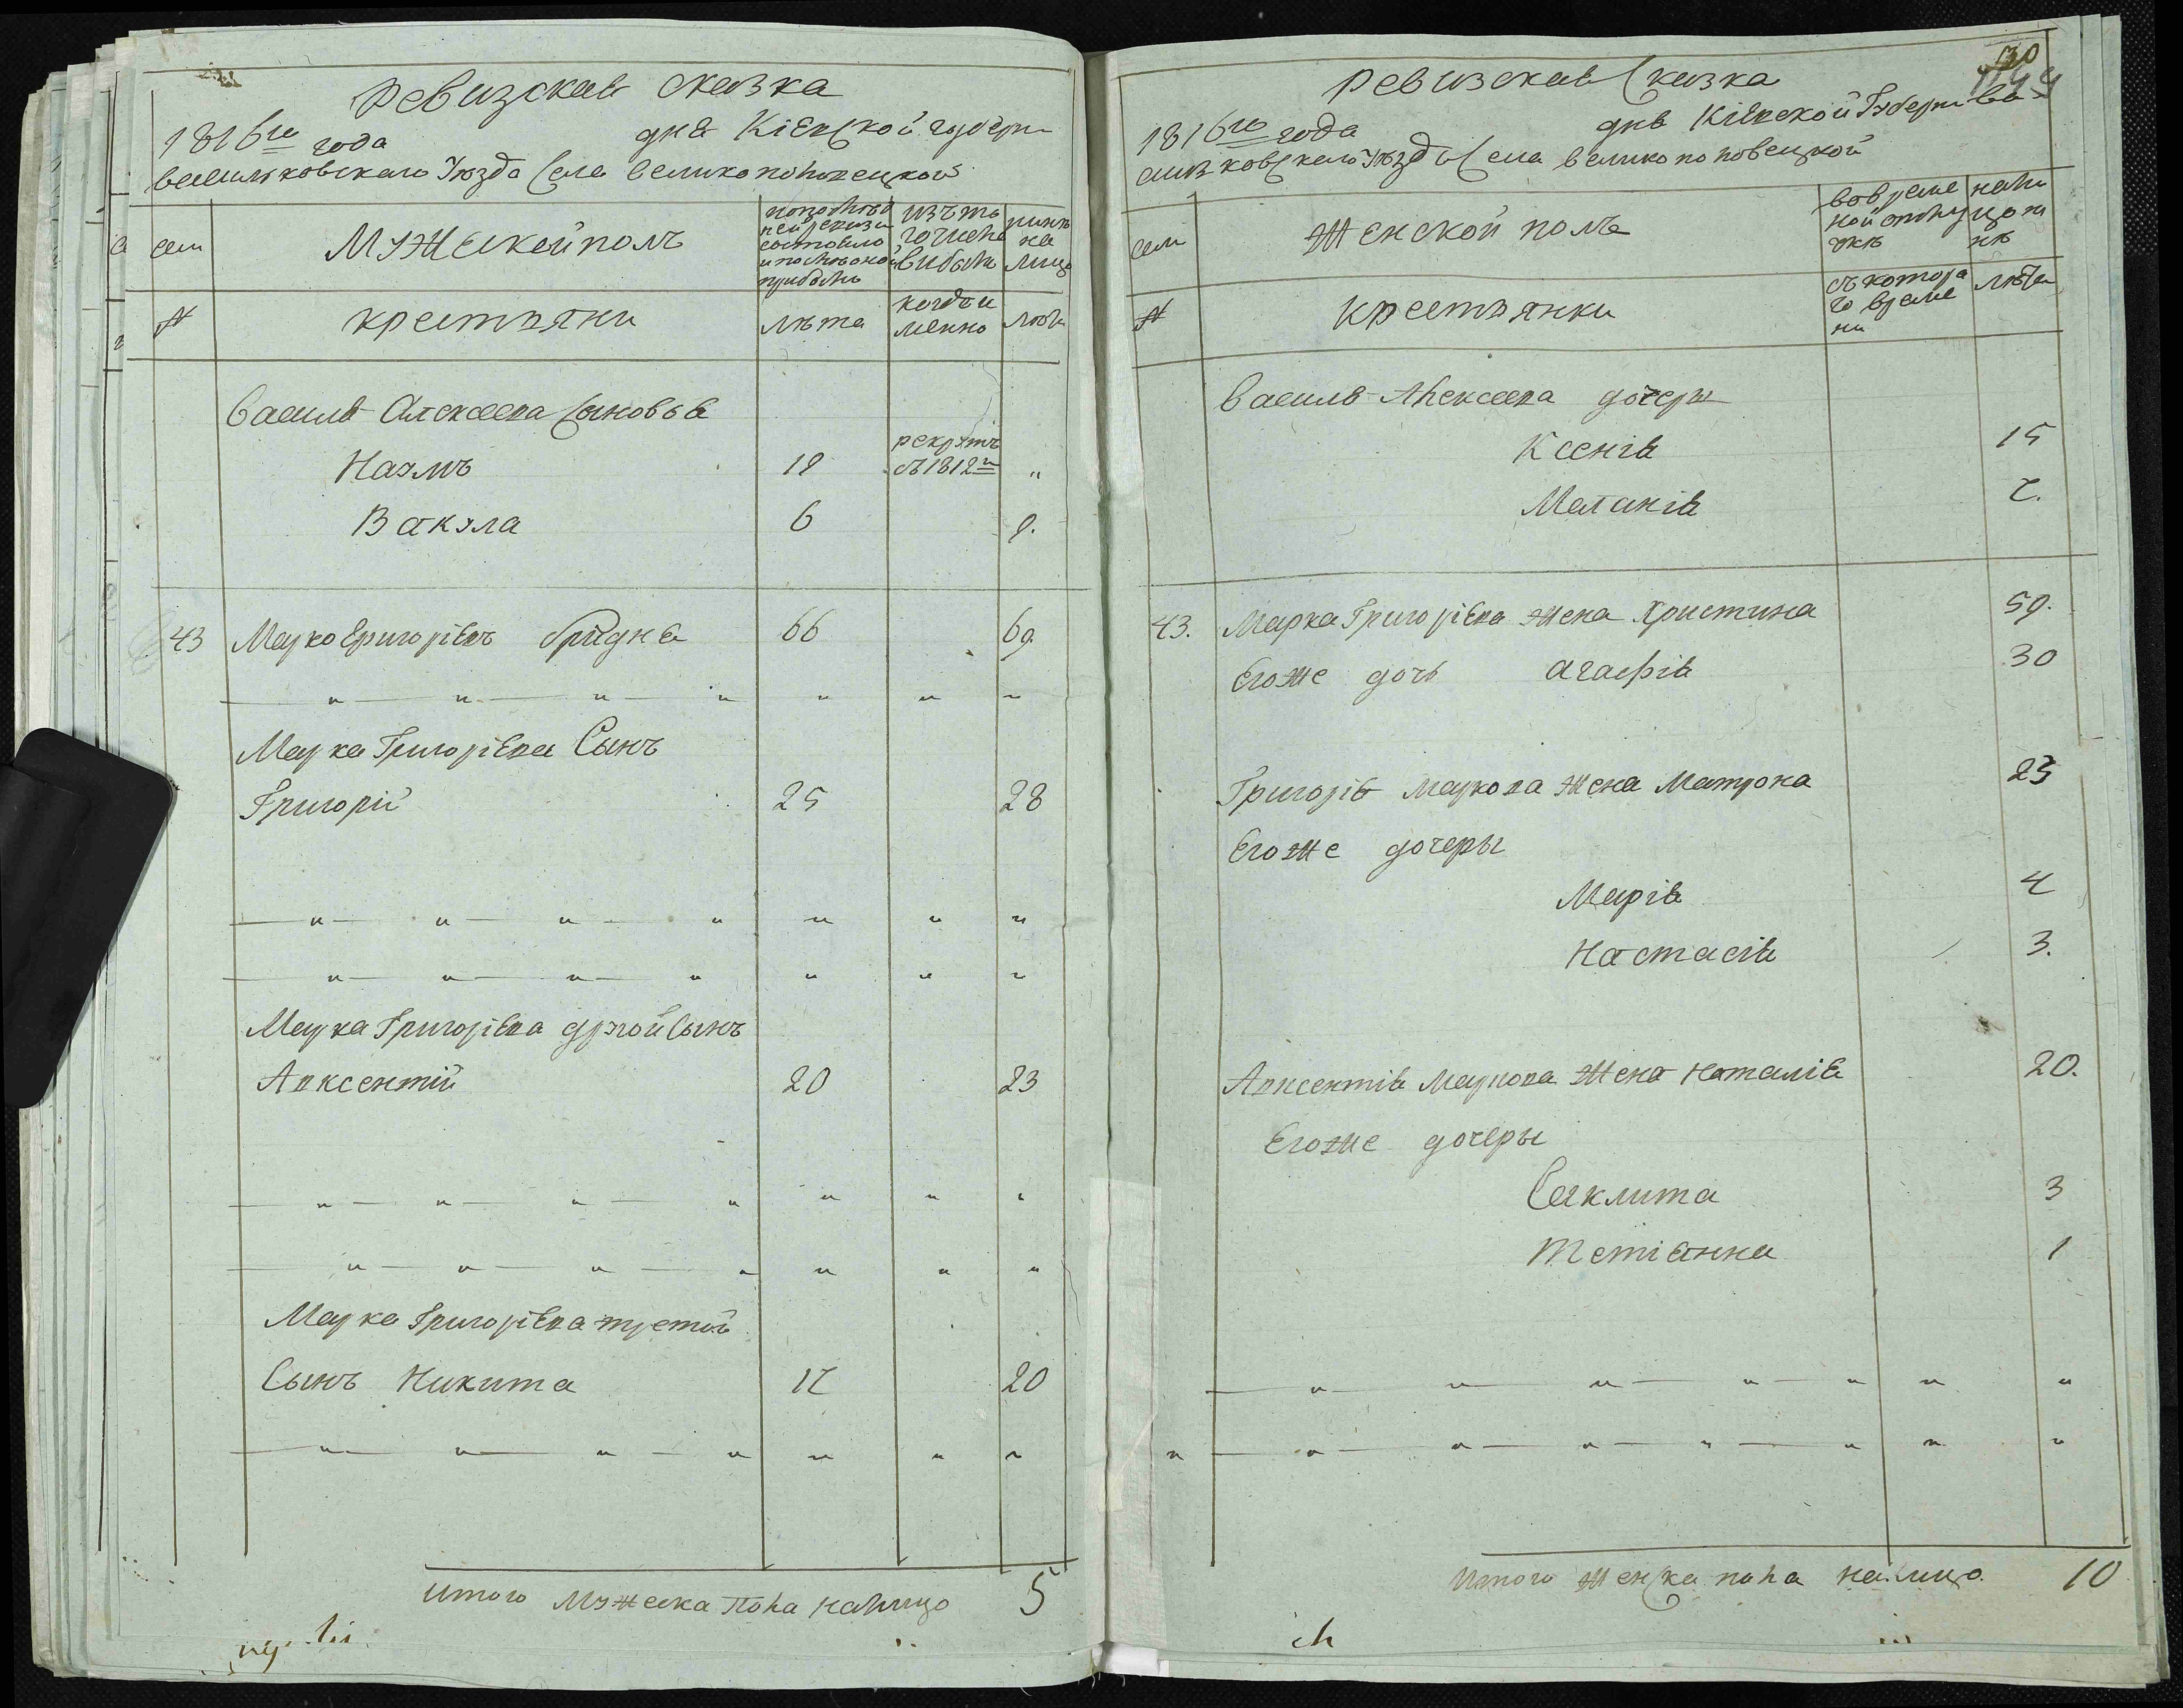 Ревизская сказка
1816го года дня Кіевской губерн
васильковского Уезда Села великополовецкой
сем
Мужеской полъ
лета
когда и
менно
лета
№
крестьяни
Василя Алексеева Сыновья
рекрутъ
Наумъ 19 въ 1812м "
Вакула 6 9.
43 Марко Григоріевъ Гридня 66 69.
Марка Григоріева Сынъ
Григорій 25 28
Марка Григоріева другой Сынъ
Авксентій 20 23
Марка Григоріева третій
Сынъ Никита 17 20
Итого Мужеска пола налицо 5
30
Ревизская Сказка
1816го года дня Кіевской Губерни Ва
силковского Уезда Села великополовецкой
сем
Женской полъ
вовреме
ной отлу
чке
нали
цо
№
крестьянки
съ котора
го време
ни
лета
Василя Алексеева дочеры
Ксенія 15
Маланія 7.
43. Марка Григоріева жена Христина 59.
Егоже дочь Агафія 30
Григорія Маркова жена Матрона 23
Егоже дочеры
Марія 4
Настасія 3.
Авксентія Маркова жена Наталія 20.
Егоже дочеры
Секлита 3
Тетіянна 1
Итого женска пола налицо 10